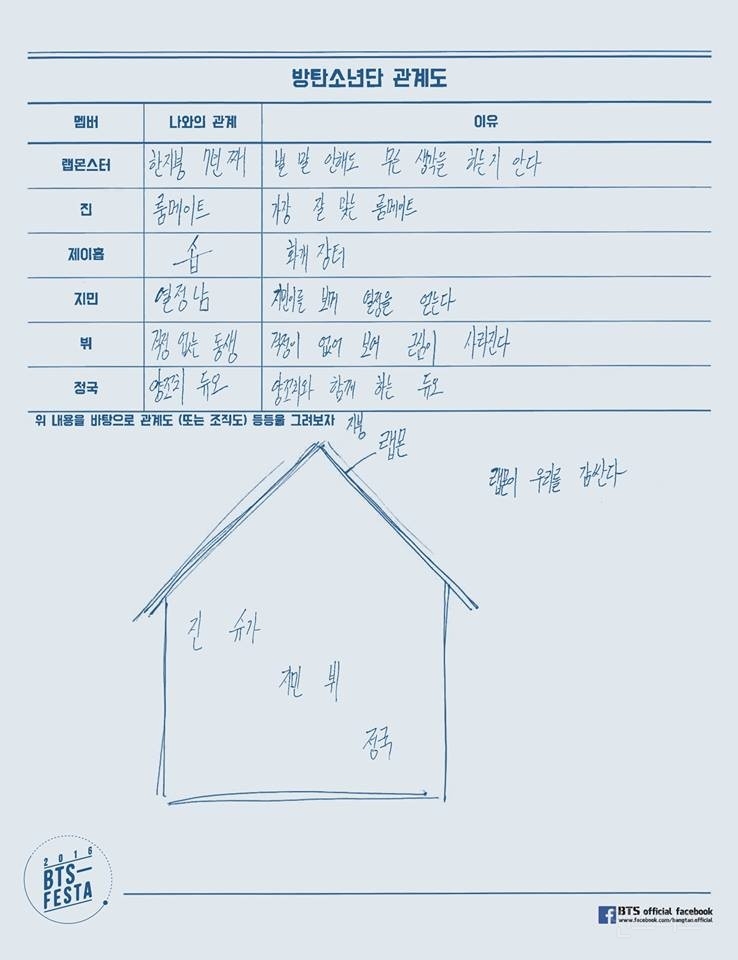 방탄소년단 관계도
멤버 나와의 관계 이유
랩몬스터 한지붕 7년 째 별 말 안해도 무슨 생각을 하는지 안다
진 룸메이트 가장 잘 맞는 룸메이트
제이홉 홉 화개 장터
지민 열정남 지민이를 보며 열정을 얻는다
뷔 걱정 없는 동생 걱정이 없어 보여 근심이 사라진다
정국 양꼬치 듀오 양꼬치와 함께 하는 듀오
위 내용을 바탕으로 관계도 (또는 조직도) 등등을 그려보자
지붕
랩몬
랩몬이 우리를 감싼다
진 슈가
지민 뷔
정국
2016
BTS-
FESTA
BTS official facebook
www.facebook.com/bangtan.official